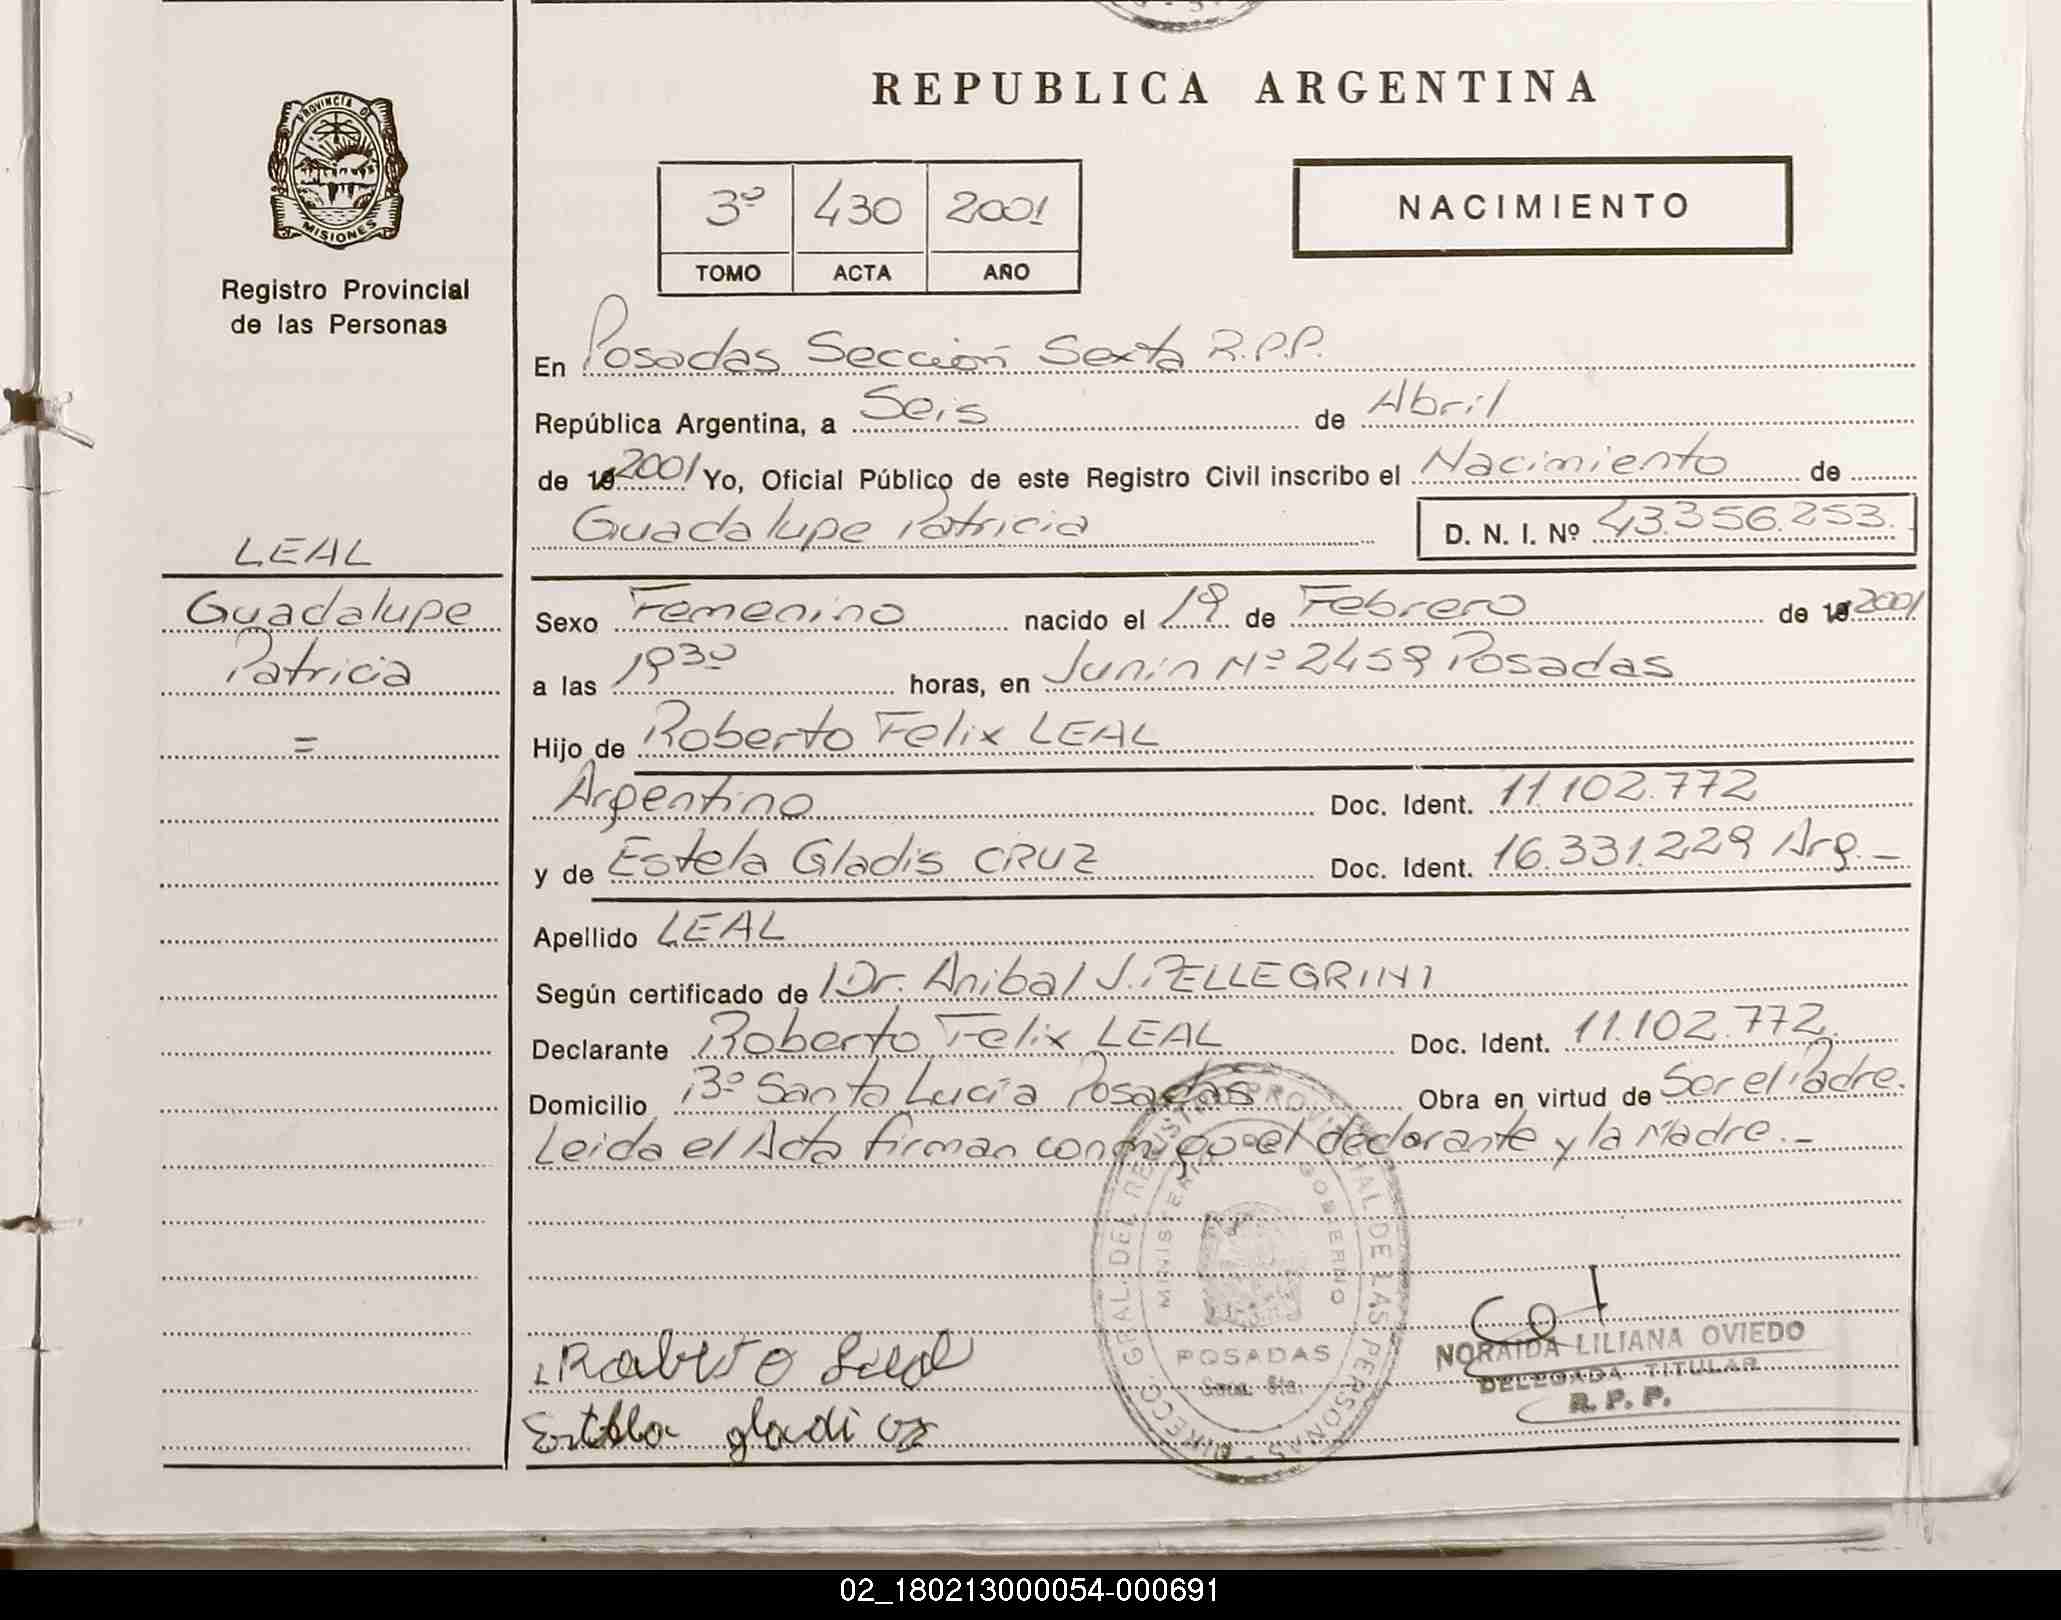 REPUBLICA ARGENTINA
PROVINCIA D
MISIONES
Registro Provincial
de las Personas
3º 430 2001
TOMO ACTA AÑO
NACIMIENTO
En Posadas Sección Sexta R.P.P.
República Argentina, a Seis de Abril
de 19 2001 Yo, Oficial Público de este Registro Civil inscribo el Nacimiento de
Guadalupe Patricia D. N. I. Nº 43.356.253.
LEAL
Guadalupe
Patricia
=
Sexo Femenino nacido el 19 de Febrero de 19 2001
a las 1930 horas, en Junin Nº 2459 Posadas
Hijo de Roberto Felix LEAL
Argentino Doc. Ident. 11.102.772
y de Estela Gladis CRUZ Doc. Ident. 16.331.229 Arg.-
Apellido LEAL
Según certificado de Dr. Anibal J. PELLEGRINI
Declarante Roberto Felix LEAL Doc. Ident. 11.102.772.
Domicilio Bº Santa Lucía Posadas Obra en virtud de Ser el Padre.
Leida el Acta firman conmigo el declarante y la Madre.-
DIRECC. GRAL. DEL REGISTRO PROVINCIAL DE LAS PERSONAS
MINISTERIO GOBIERNO
POSADAS
Secc. 6ta.
Roberto Leal
Estela gladi
NORAIDA LILIANA OVIEDO
DELEGADA TITULAR
R. P. P.
02_180213000054-000691